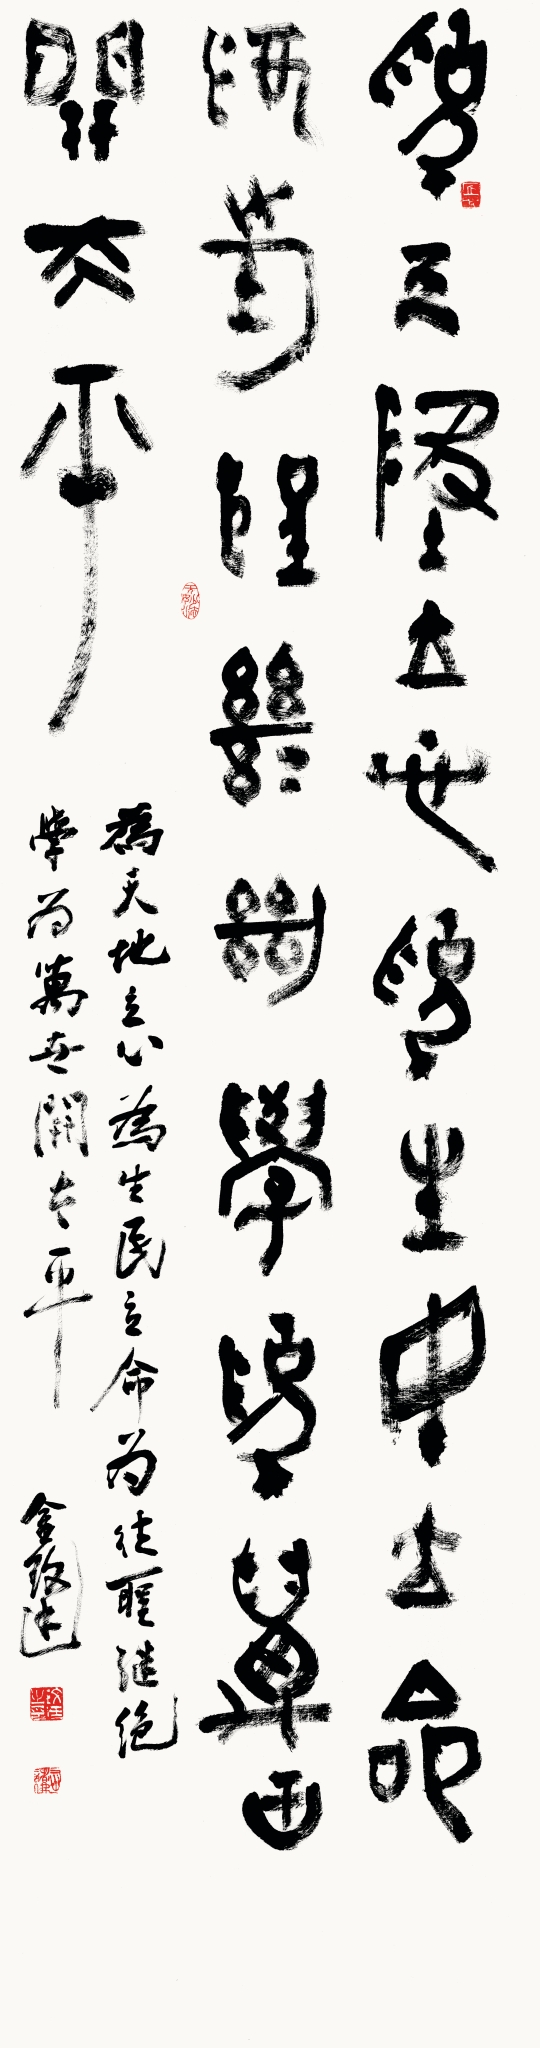 為天地立心為生民立命
為往聖繼絕學為萬世
開太平
為天地立心為生民立命为往聖継絶
學为萬世開太平
金